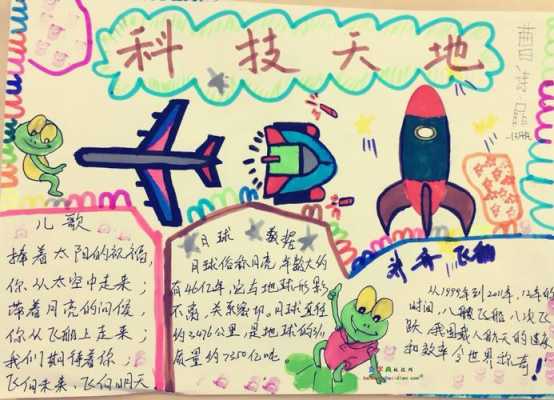 科技天地
儿歌
捧着太阳的祝福，
你从太空中走来；
带着月亮的问候，
你从飞船上走来；
我们期待着你；
飞向未来、飞向明天
月球 数据
月球俗称月亮,年龄大约
有46亿年,它与地球形影
不离,关系密切,月球直径
约3476公里,是地球的3/11
质量约7350亿吨
神舟飞船
从1999年到2011年,12年的
时间,八艘飞船,八次飞
跃,我国载人航天的速度
和效率令世界称奇!